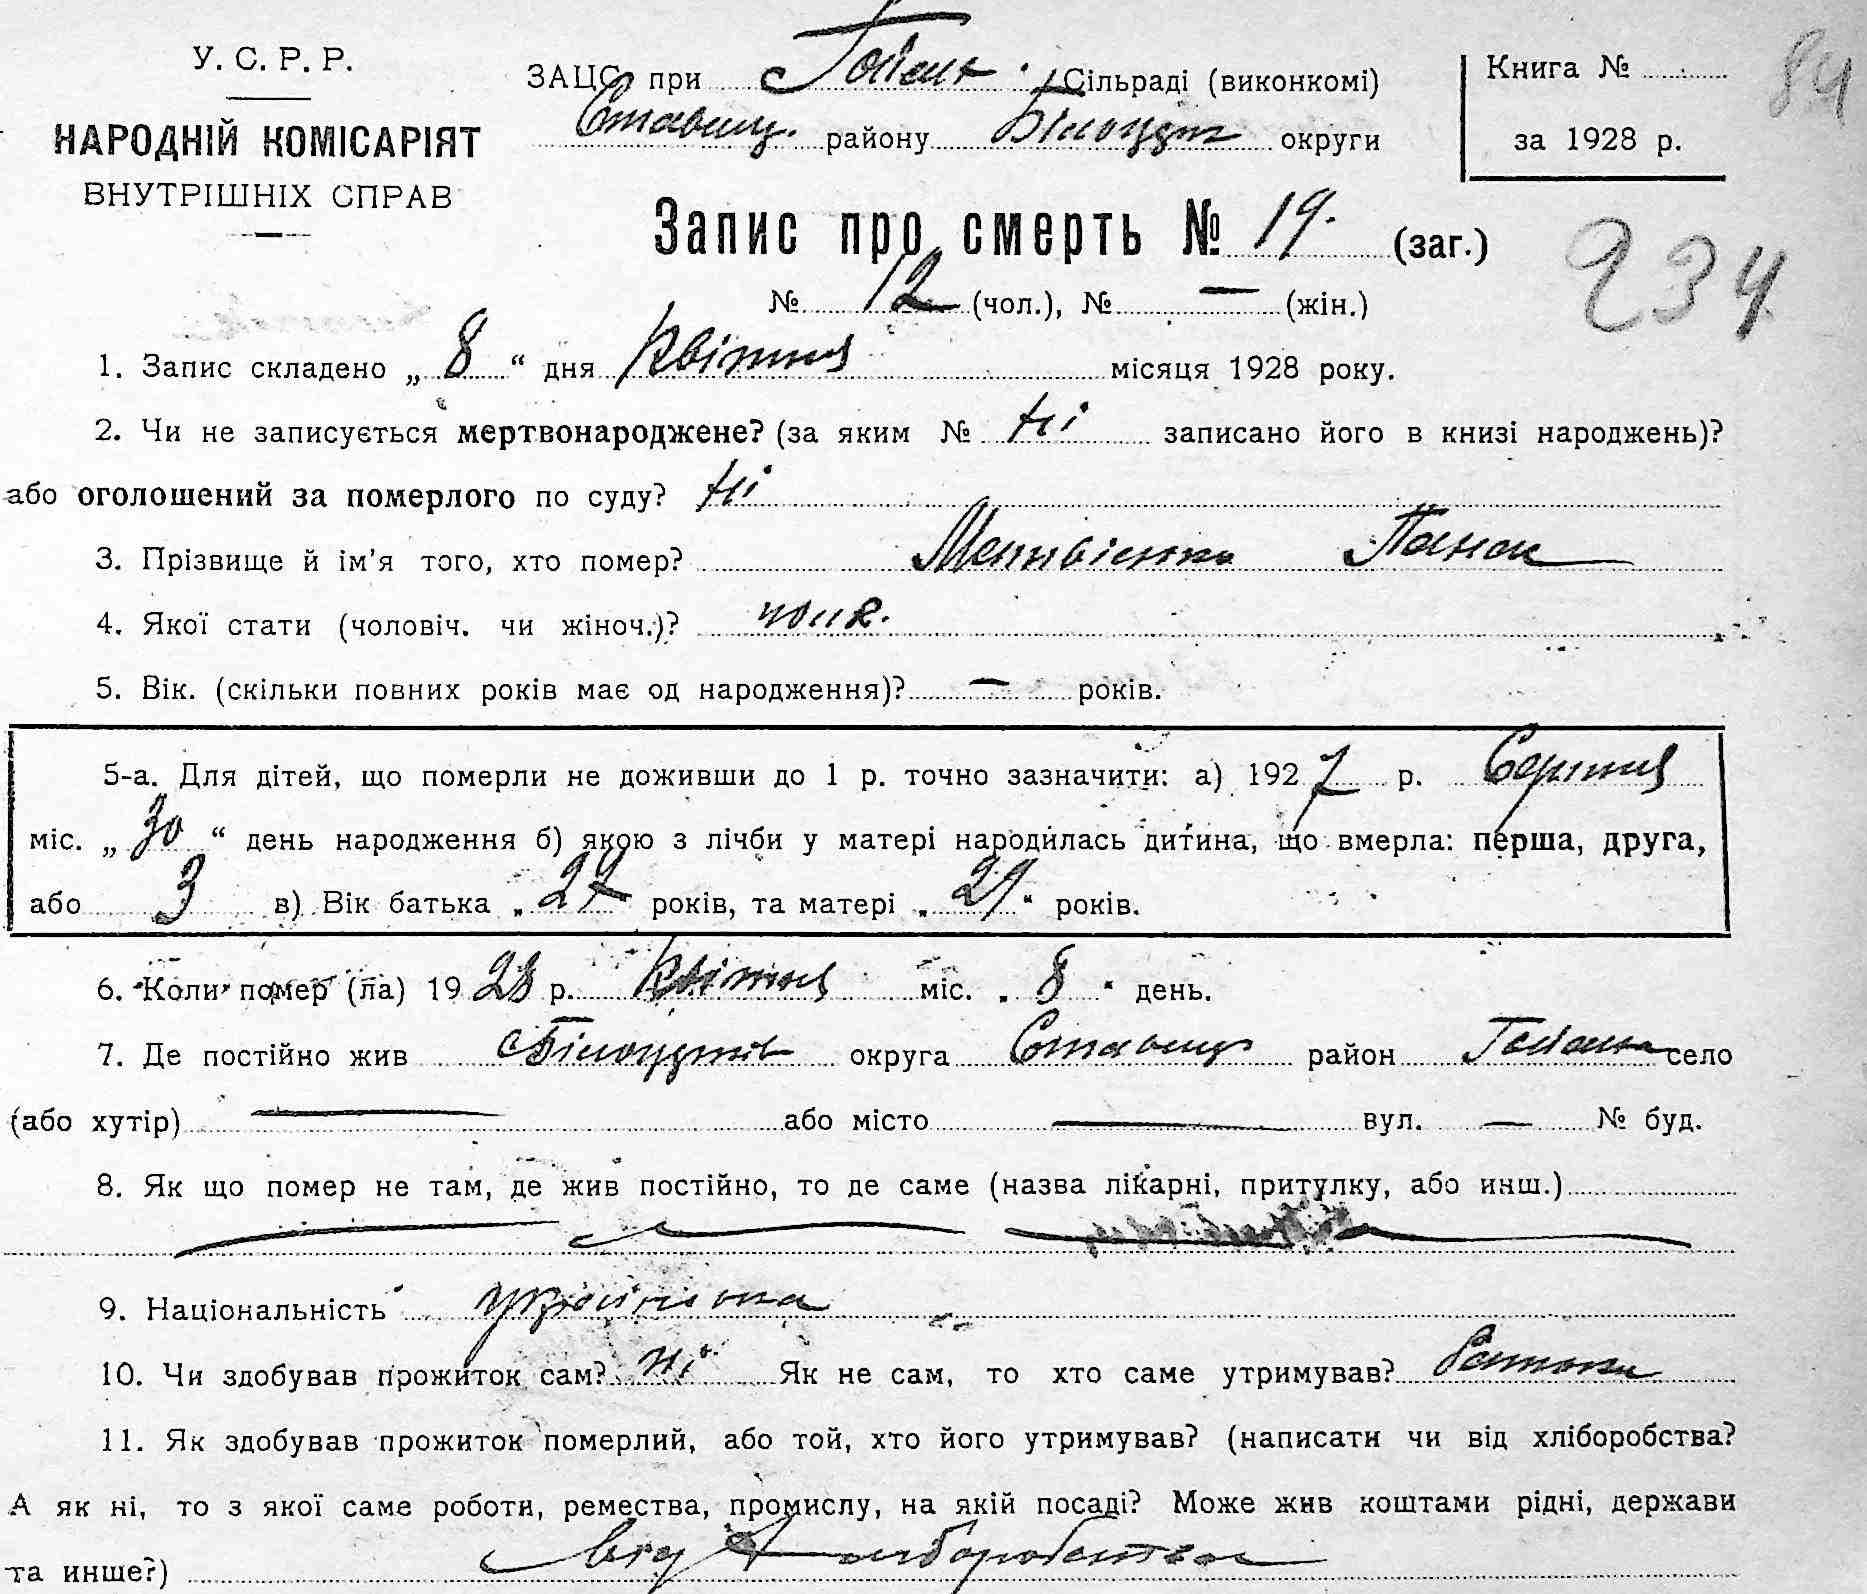 У. С. Р. Р.
НАРОДНІЙ КОМІСАРІЯТ
ВНУТРІШНІХ СПРАВ
ЗАЦС при Гейськ. Сільраді (виконкомі)
Ставищ. району Білоцерк округи
Книга № 84
за 1928 р.
Запис про смерть № 19. (заг.)
234
№ 12 (чол.), № — (жін.)
1. Запис складено „ 8 “ дня Квітня місяця 1928 року.
2. Чи не записується мертвонароджене? (за яким № Ні записано його в книзі народжень)?
або оголошений за померлого по суду? Ні
3. Прізвище й ім’я того, хто помер? Матвієнко Панас
4. Якої стати (чоловіч. чи жіноч.)? чолк.
5. Вік. (скільки повних років має од народження)? — років.
5-а. Для дітей, що померли не доживши до 1 р. точно зазначити: а) 1927 р. Серпня
міс. „ 30 “ день народження б) якою з лічби у матері народилась дитина, що вмерла: перша, друга,
або 3 в) Вік батька „ 27 років, та матері „ 29 “ років.
6. Коли помер (ла) 1928 р. Квітня міс. „ 8 “ день.
7. Де постійно жив Білоцерків округа Ставище район село
(або хутір) — або місто — вул. — № буд.
8. Як що помер не там, де жив постійно, то де саме (назва лікарні, притулку, або инш.)
9. Національність українська
10. Чи здобував прожиток сам? Ні Як не сам, то хто саме утримував? Батьки
11. Як здобував прожиток померлий, або той, хто його утримував? (написати чи від хліборобства?
А як ні, то з якої саме роботи, ремества, промислу, на якій посаді? Може жив коштами рідні, держави
та инше?) від хліборобства